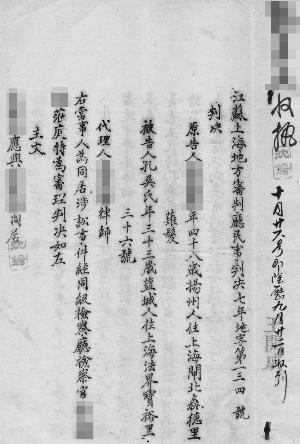 收執
十月廿六号即陰曆九月廿二日收到
江蘇上海地方審判廳民事判决七年地字第一三四號
判决
原告人　年四十八歲揚州人住上海閘北森德里
薙髮
被告人孔吳氏年三十三歲鹽城人住上海法界寶裕里
三十六號
代理人　律師
右當事人為同居涉訟案件經同級檢察廳檢察官
蒞庭特為審理判决如左
主文
應與　尚義